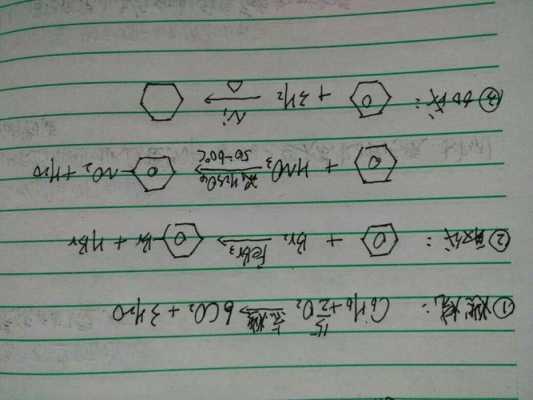 ① 燃烧: C6H6 + 15/2 O2 点燃→ 6CO2 + 3H2O
② 取代: ⌬ + Br2 FeBr3→ ⌬-Br + HBr
⌬ + HNO3 浓H2SO4 50-60℃→ ⌬-NO2 + H2O
③ 加成: ⌬ + 3H2 Ni △→ ⬡